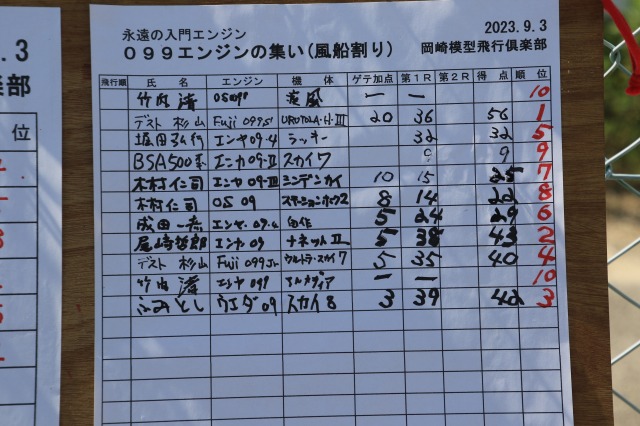 永遠の入門エンジン 2023.9.3
099エンジンの集い(風船割り) 岡崎模型飛行倶楽部
飛行順 氏名 エンジン 機体 ゲテ加点 第1R 第2R 得点 順位
竹内 OS099 疾風 ー ー 10
デスト 杉山 Fuji 099S 20 36 56 1
堀田 エンヤ09-4 ラッキー 32 32 5
BSA500 エンヤ09-II スカイ7 9 9 9
木村仁司 エンヤ09-III 10 15 25 7
木村仁司 OS 09 8 14 22 8
成田 エンヤ09 自作 5 24 29 6
尾崎哲郎 エンヤ09 ナネットII 5 38 43 2
デスト 杉山 Fuji 099Jr. ウルトラ・スカイ7 5 35 40 4
竹内 エンヤ099 ー ー 10
ふみとし ウエダ09 スカイ8 3 39 42 3
9.3
部
位